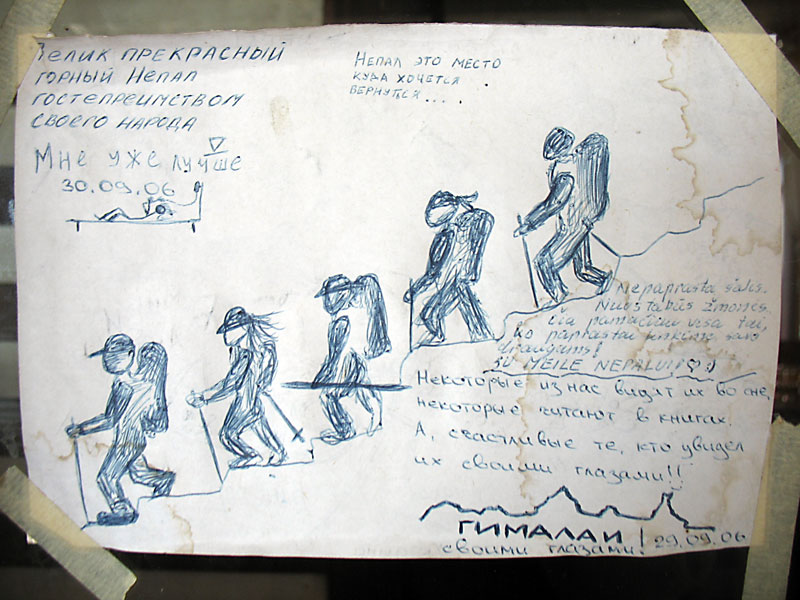 Велик прекрасный
горный Непал
гостепреимством
своего народа
Мне уже лучше
30.09.06
Непал это место
куда хочется
вернутся....
Nepaprasta šalis.
Nuostabūs žmonės.
Čia pamačiau visa tai,
ko paprastai
SU MEILE NEPALUI!
Некоторые из нас видят их во сне,
некоторые читают в книгах.
А, счастливые те, кто увидел
их своими глазами!!
ГИМАЛАИ!
своими глазами! 29.09.06